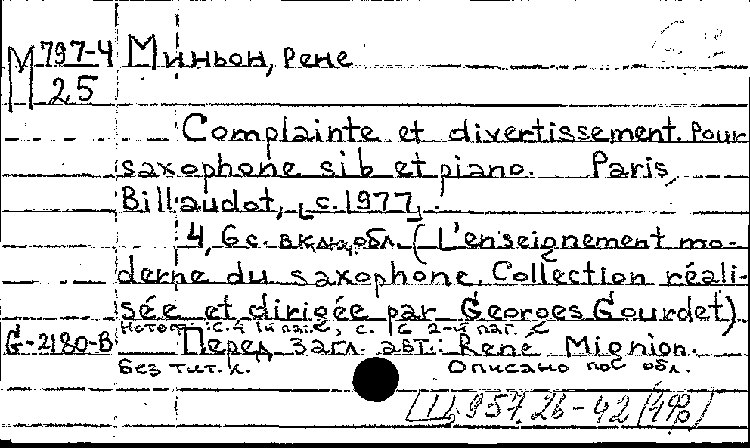 М 797-4 Миньон, Рене
25
Complainte et divertissement. Pour
saxophone si b et piano. Paris,
Billaudot, [c. 1977].
4, 6 с. включ. обл. (L'enseignement mo-
derne du saxophone. Collection réali-
sée et dirigée par Georges Gourdet)
G-2180-В Перед загл. авт.: René Mignion.
Без тит. л. Описано по обл.
957.26-42